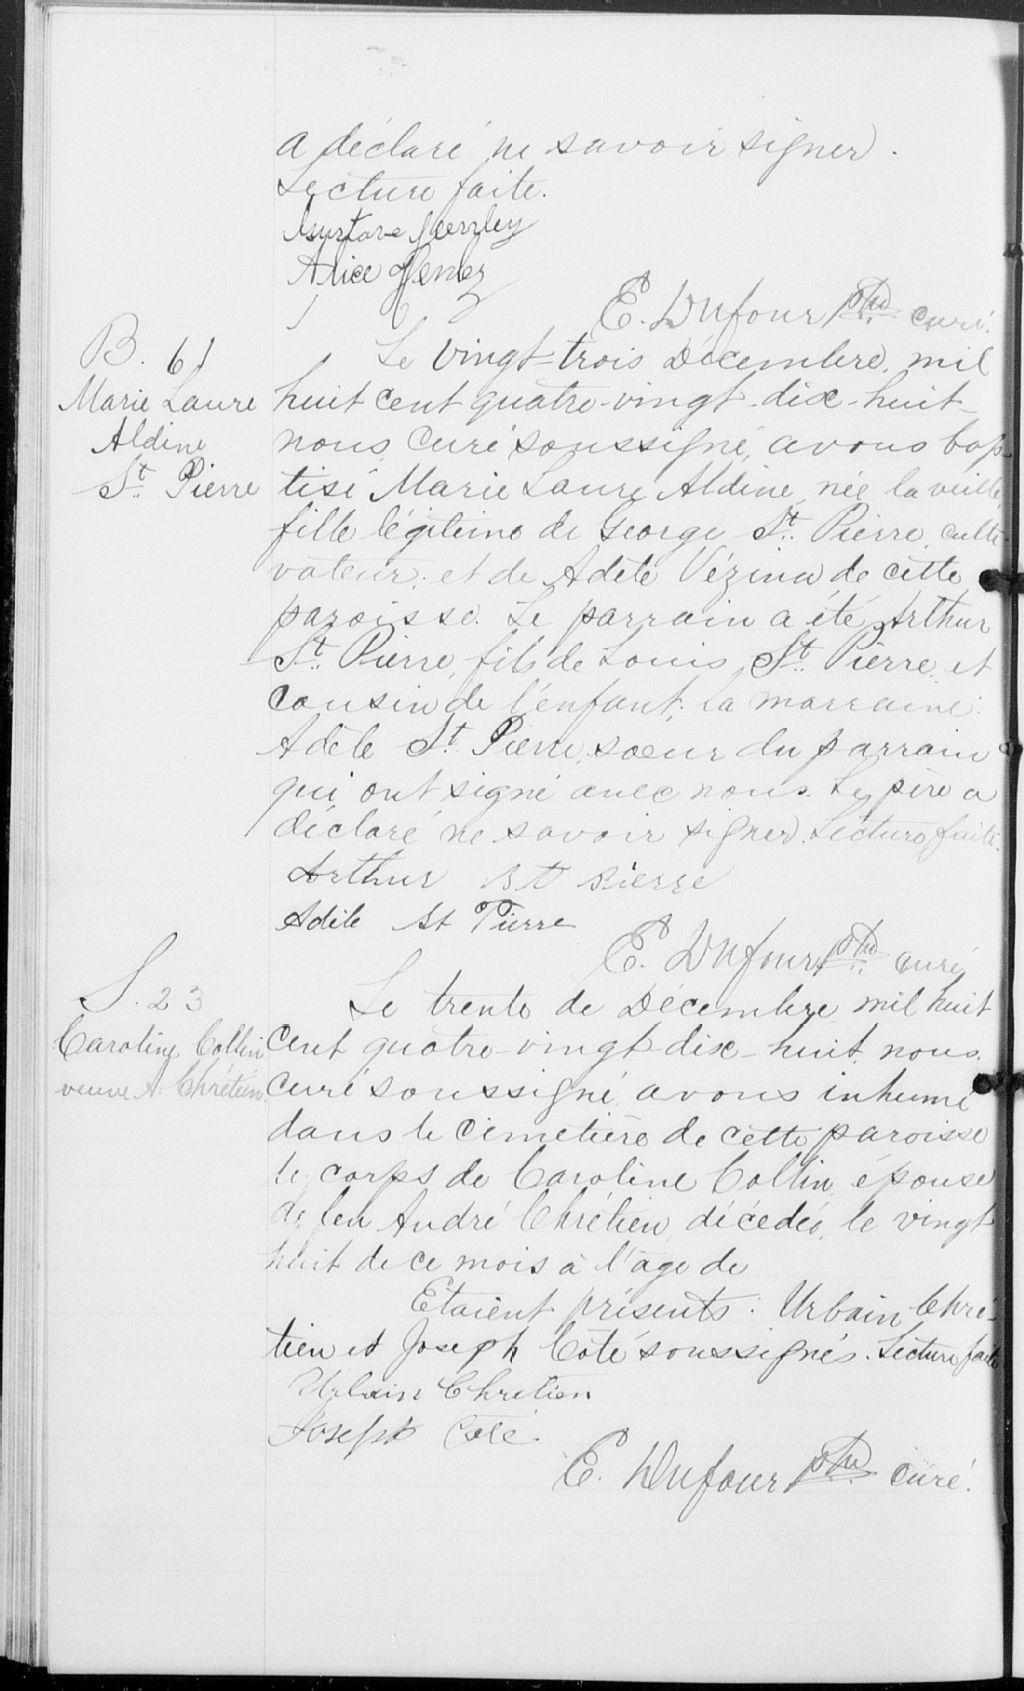 a déclaré ne savoir signer.
Lecture faite.
Alice
E. Dufour ptre curé.
B. 61
Marie Laure
Aldine
St. Pierre
Le vingt-trois Décembre, mil
huit cent quatre-vingt-dix-huit
nous, curé soussigné, avons bap-
tisé Marie Laure Aldine, née la veille,
fille légitime de George St. Pierre, culti-
vateur, et de Adèle Vézina de cette
paroisse. Le parrain a été Arthur
St. Pierre, fils de Louis St. Pierre, et
cousin de l'enfant; la marraine:
Adèle St. Pierre, sœur du parrain
qui ont signé avec nous. Le père a
déclaré ne savoir signer. Lecture faite.
Arthur St Pierre
Adèle St Pierre
E. Dufour ptre curé
S. 23
Caroline Collin
veuve A. Chrétien
Le trente de Décembre, mil huit
cent quatre-vingt-dix-huit, nous
curé soussigné, avons inhumé
dans le cimetière de cette paroisse
le corps de Caroline Collin, épouse
de feu André Chrétien, décédée, le vingt
huit de ce mois à l'âge de
Etaient présents: Urbain Chré-
tien et Joseph Coté soussignés. Lecture faite
Urbain Chretien
Joseph Coté
E. Dufour ptre curé.